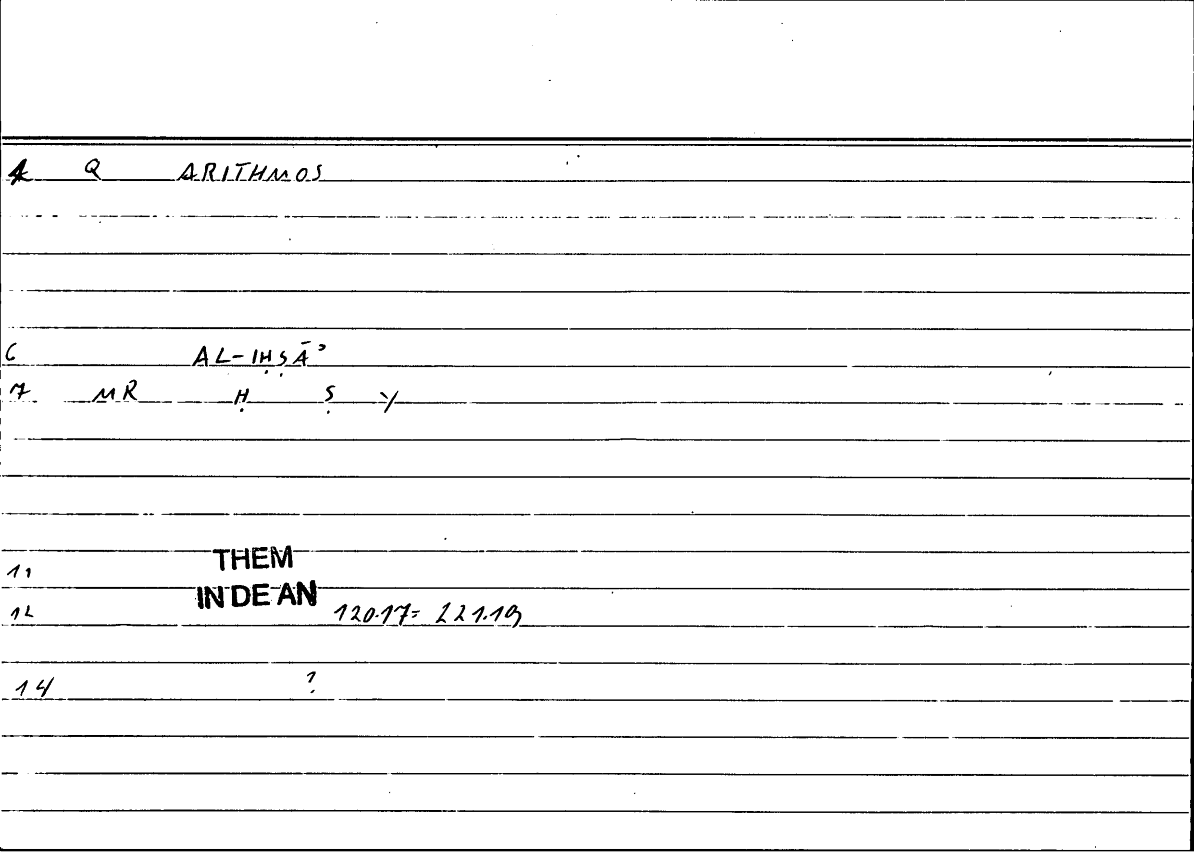 1 Q ARITHMOS
6 AL-IḤṢĀʾ
7 MR Ḥ Ṣ Y
11 THEM
IN DE AN
12 120.17= 221.19
14 ?